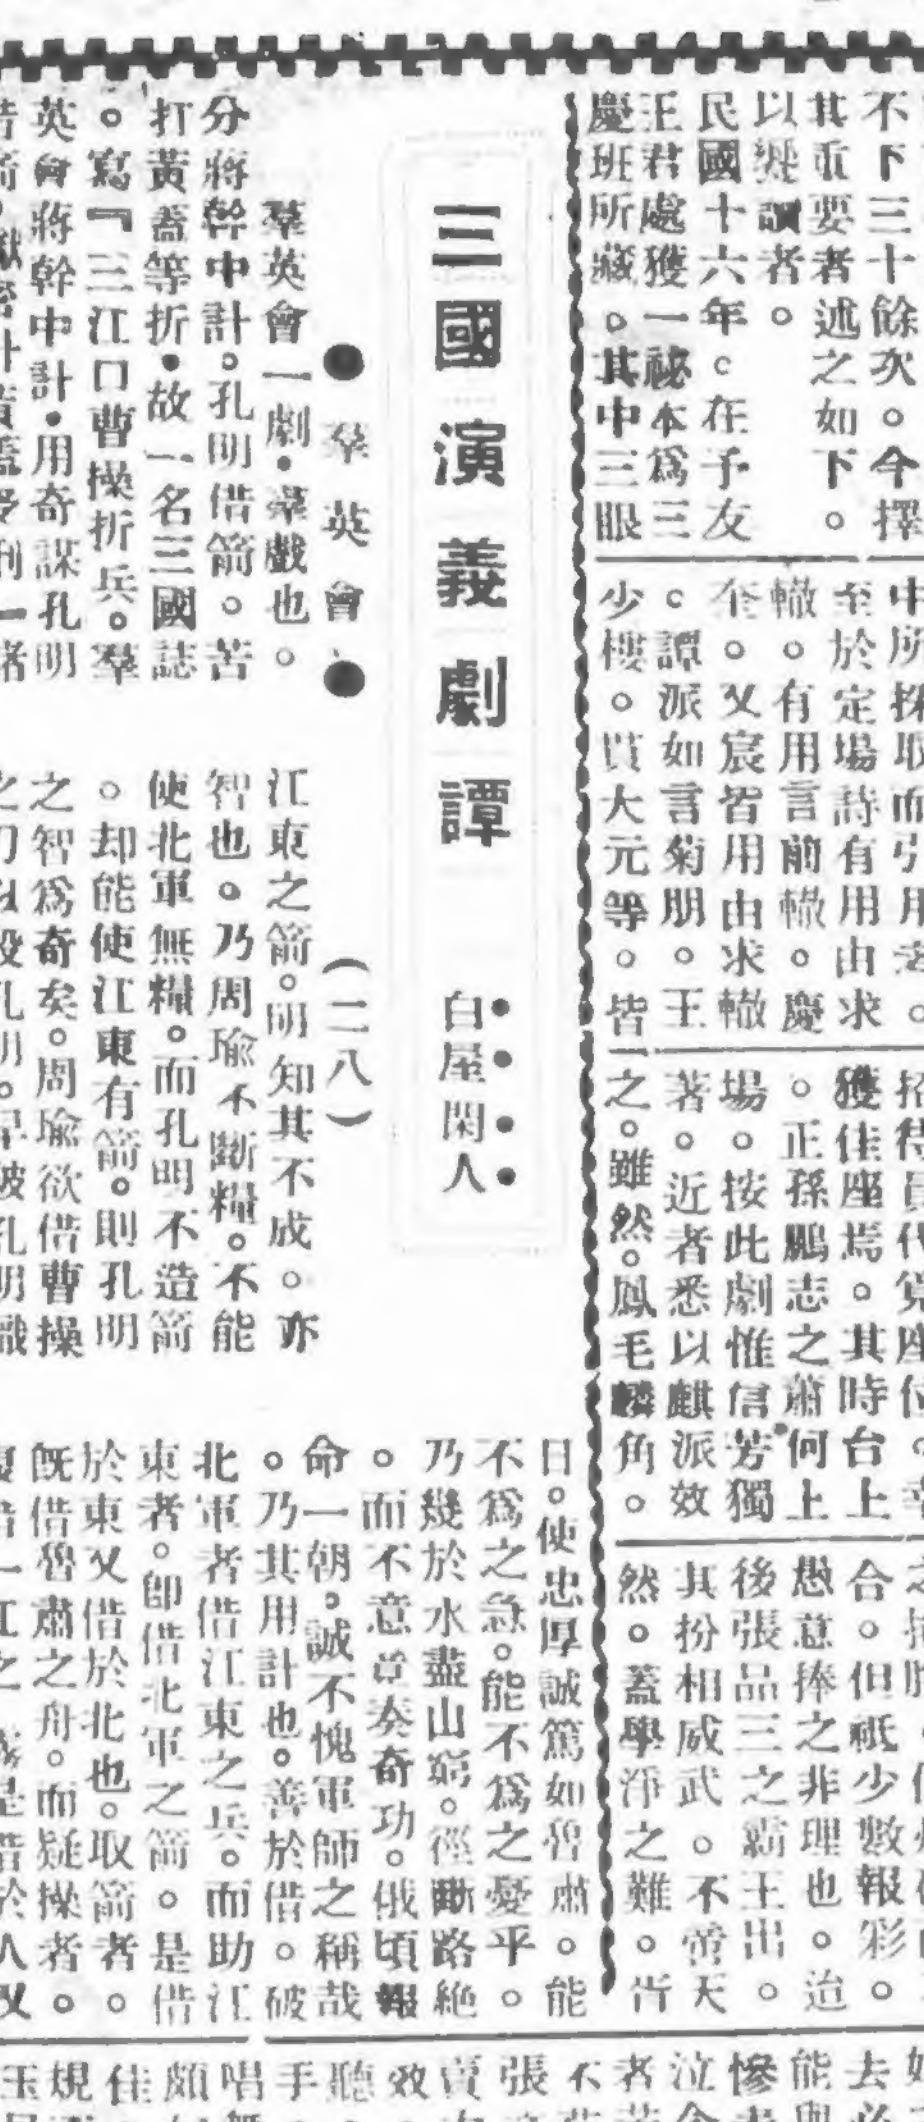 不下三十餘次。今擇
其重要者述之如下。
以饗讀者。
民國十六年。在予友
王君處獲一祕本爲三
慶班所藏。其中三眼
中所採取而引用者。
至於定場詩有用由求
轍。有用言前轍。慶
奎。又宸皆用由求轍
。譚派如言菊朋。王
少樓。貫大元等。皆
招待員代覓座位。幸
獲佳座焉。其時台上
。正孫鵬志之蕭何上
場。按此劇惟信芳獨
著。近者悉以麒派效
之。雖然。鳳毛麟角。
合。但祇少數報彩。
愚意捧之非理也。迨
後張品三之霸王出。
其扮相威武。不啻天
然。蓋學淨之難。
三國演義劇譚
白屋閑人
●羣英會●
(二八)
羣英會一劇・羣戲也。
分蔣幹中計。孔明借箭。苦
打黃蓋等折・故一名三國誌
。寫『三江口曹操折兵。羣
英會蔣幹中計・用奇謀孔明
借箭・獻密計黃蓋受刑』諸
江東之箭。明知其不成。亦
智也。乃周瑜不斷糧。不能
使北軍無糧。而孔明不造箭
。却能使江東有箭。則孔明
之智爲奇矣。周瑜欲借曹操
之刀以殺孔明。早被孔明識
日。使忠厚誠篤如魯肅。能
不爲之急。能不爲之憂乎。
乃幾於水盡山窮。徑斷路絶
。而不意竟奏奇功。俄頃報
命一朝。誠不愧軍師之稱哉
。乃其用計也。善於借。破
北軍者借江東之兵。而助江
東者。卽借北軍之箭。是借
於東又借於北也。取箭者。
旣借魯肅之舟。而疑操者。
復借一江之霧是借於人又